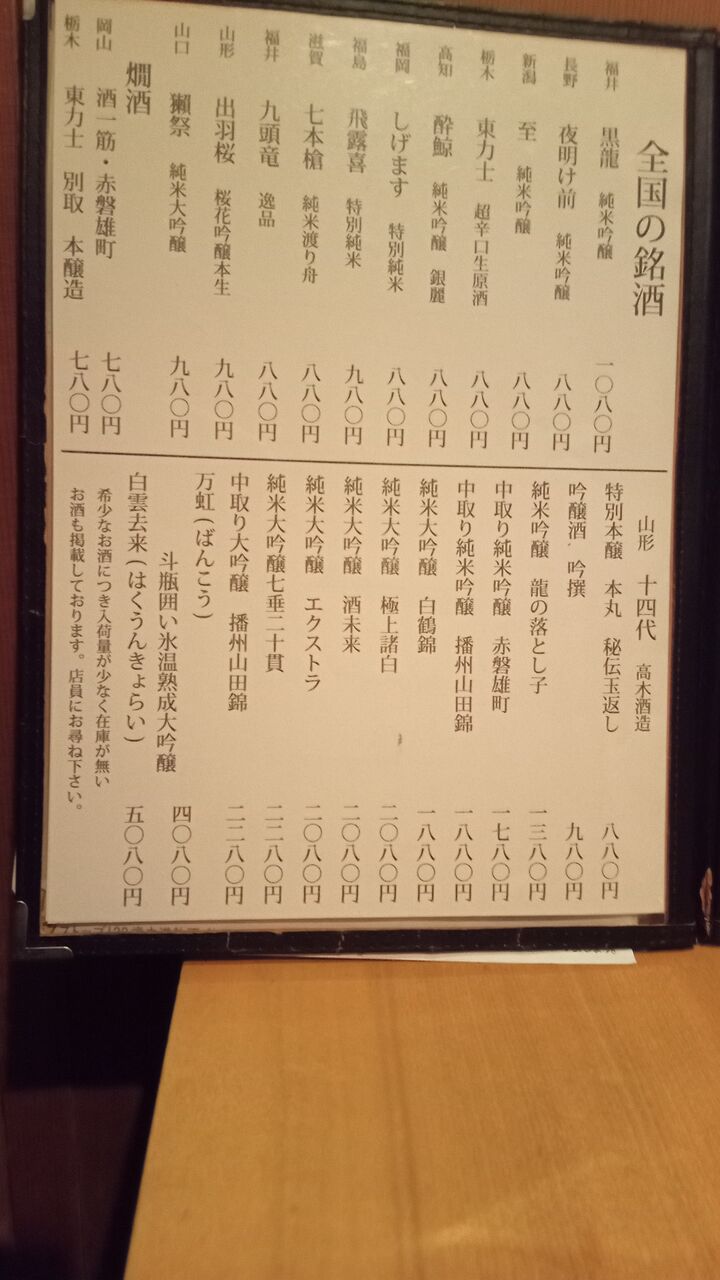 全国の銘酒
福井 黒龍 純米吟醸 一〇八〇円
長野 夜明け前 純米吟醸 八八〇円
新潟 至 純米吟醸 八八〇円
栃木 東力士 超辛口生原酒 八八〇円
高知 酔鯨 純米吟醸 銀麗 八八〇円
福岡 しげます 特別純米 八八〇円
福島 飛露喜 特別純米 九八〇円
滋賀 七本槍 純米渡り舟 八八〇円
福井 九頭竜 逸品 八八〇円
山形 出羽桜 桜花吟醸本生 九八〇円
山口 獺祭 純米大吟醸 九八〇円
燗酒
岡山 酒一筋・赤磐雄町 七八〇円
栃木 東力士 別取 本醸造 七八〇円
山形 十四代 高木酒造
特別本醸 本丸 秘伝玉返し 八八〇円
吟醸酒 吟撰 九八〇円
純米吟醸 龍の落とし子 一三八〇円
中取り純米吟醸 赤磐雄町 一七八〇円
中取り純米吟醸 播州山田錦 一八八〇円
純米大吟醸 白鶴錦 一八八〇円
純米大吟醸 極上諸白 二〇八〇円
純米大吟醸 酒未来 二〇八〇円
純米大吟醸 エクストラ 二〇八〇円
純米大吟醸七垂二十貫 二二八〇円
中取り大吟醸 播州山田錦 二二八〇円
万虹(ばんこう)
斗瓶囲い氷温熟成大吟醸 四〇八〇円
白雲去来(はくうんきょらい) 五〇八〇円
希少なお酒につき入荷量が少なく在庫が無い
お酒も掲載しております。店員にお尋ね下さい。